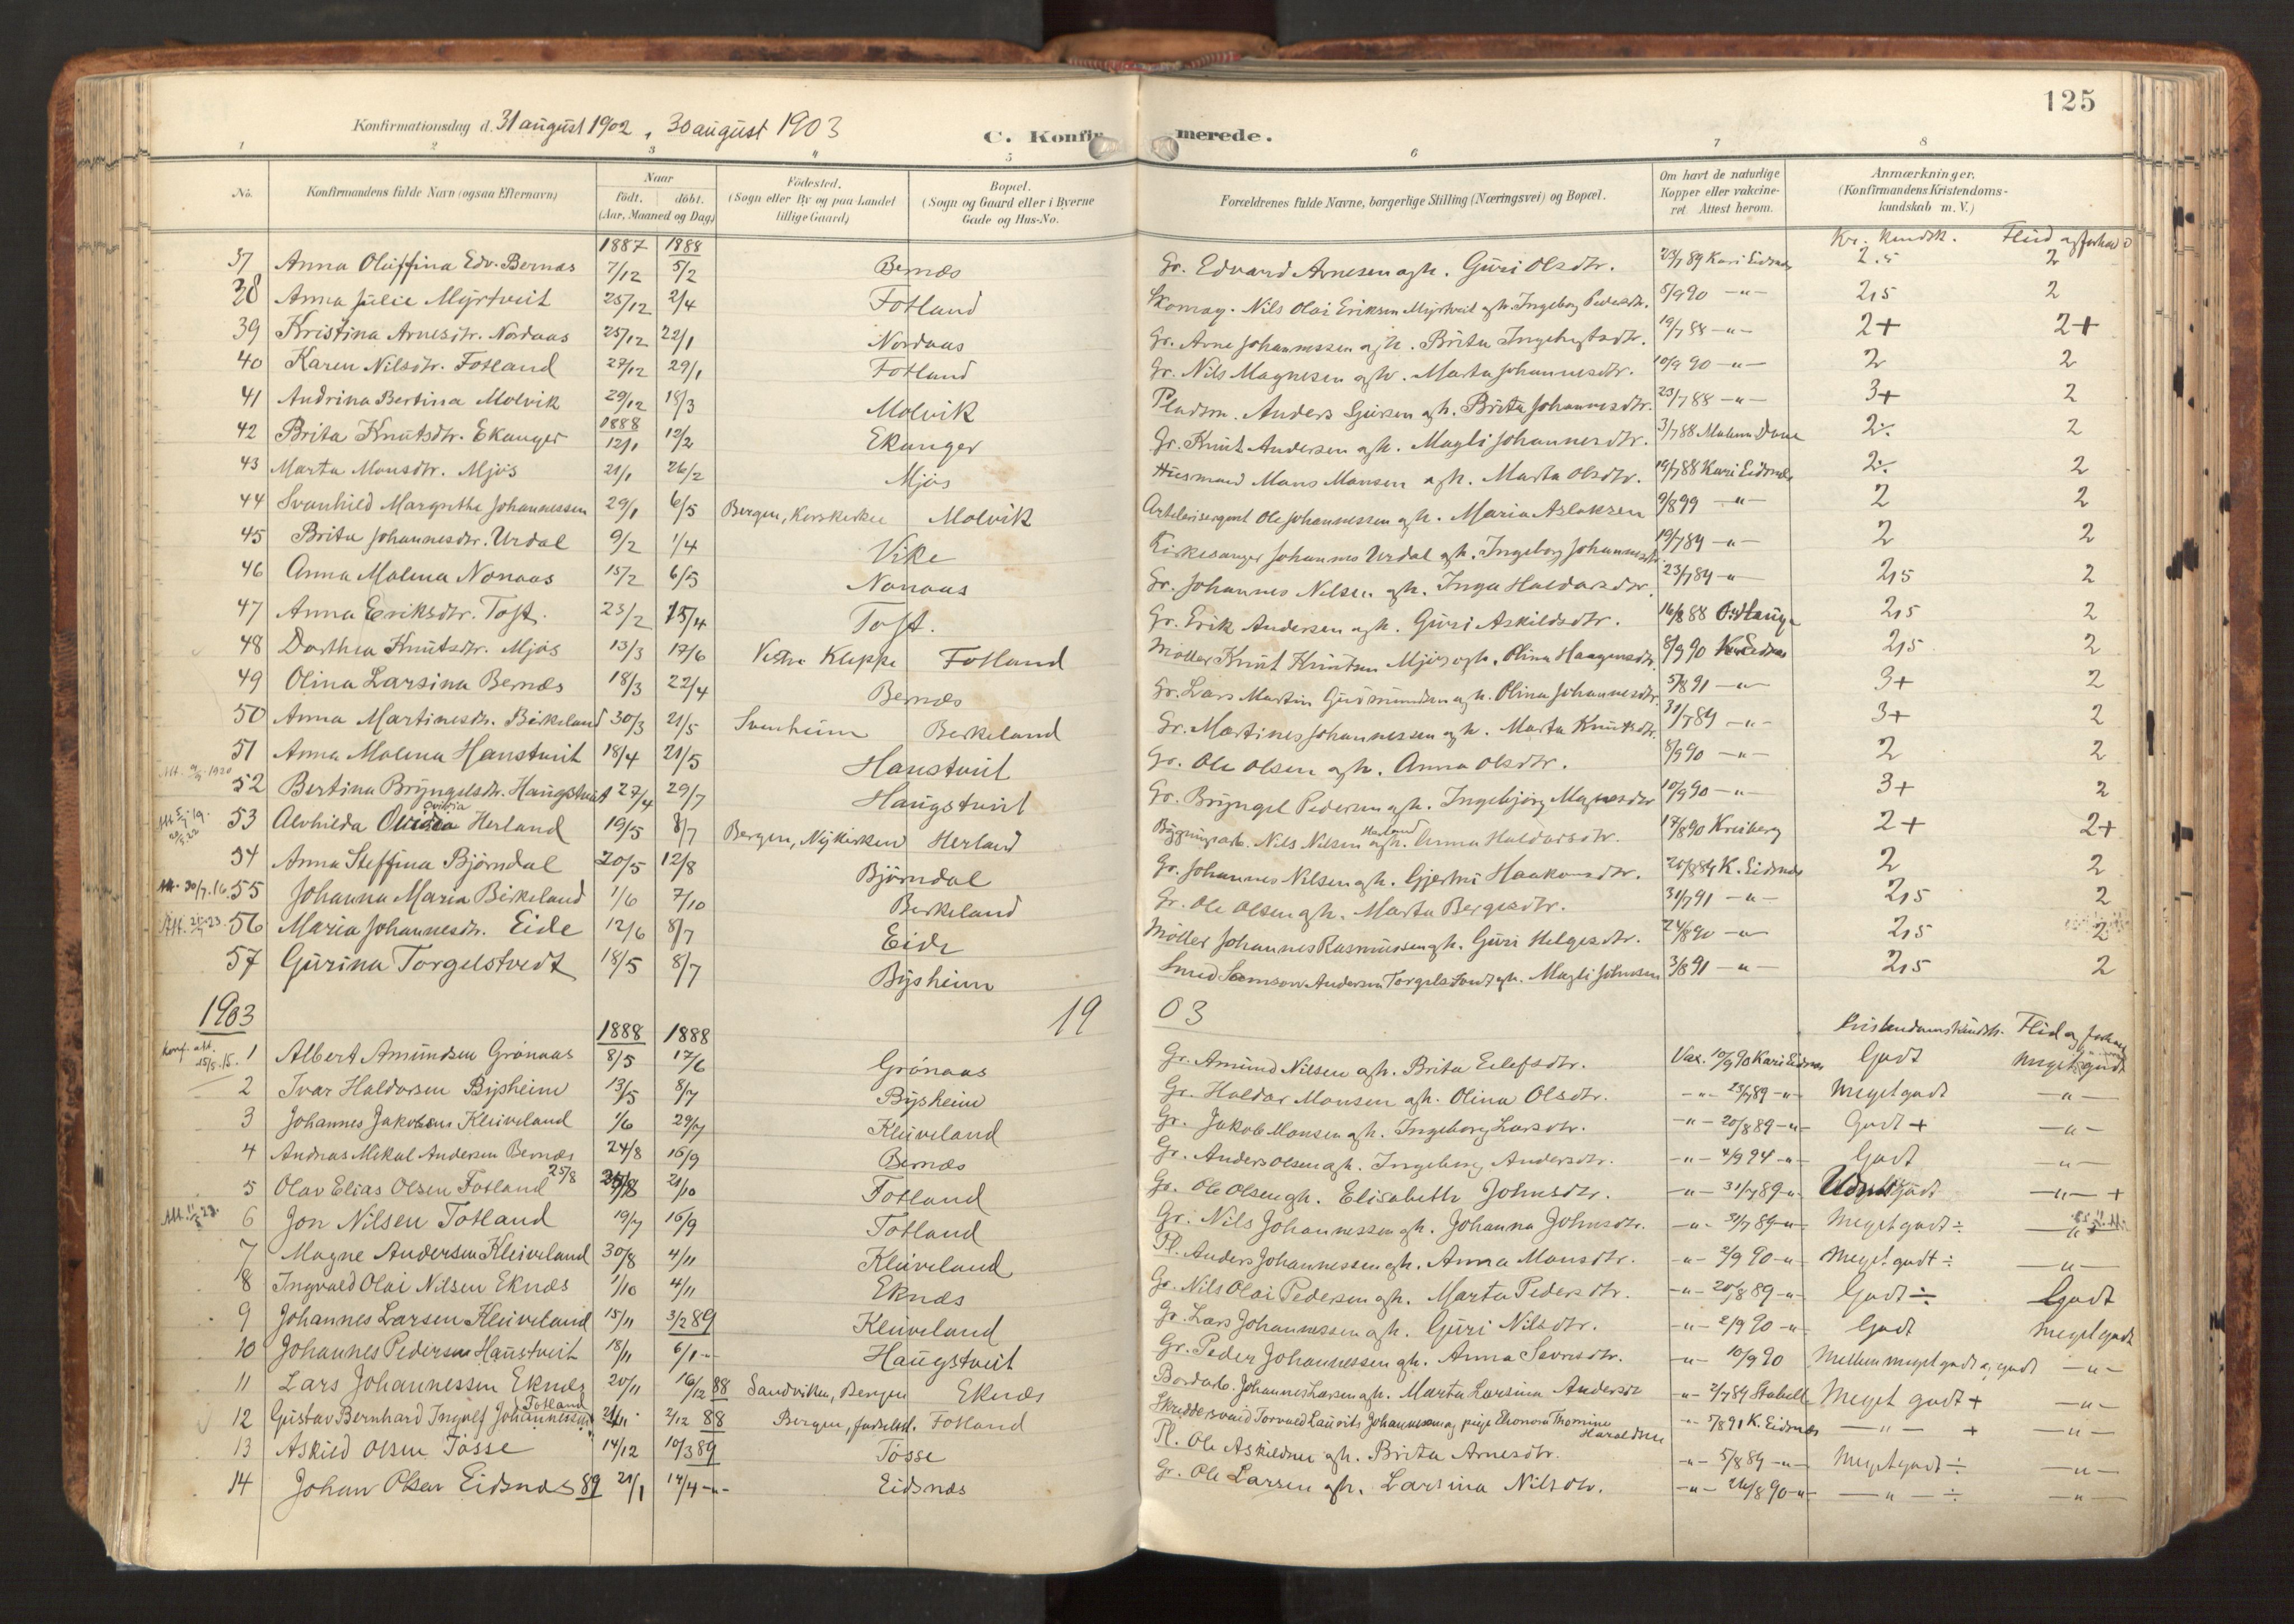 125
Konfirmationsdag d. 31 august 1902, 30 august 1903 C. Konfirmerede.
1 2 3 4 5 6 7 8
No. Konfirmandens fulde Navn (ogsaa Efternavn) Naar födt. döbt. (Aar, Maaned og Dag) Födested. (Sogn eller By og paa Landet tillige Gaard) Bopæl. (Sogn og Gaard eller i Byerne Gade og Hus-No. Forældrenes fulde Navne, borgerlige Stilling (Næringsvei) og Bopæl. Om havt de naturlige Kopper eller vakcineret Attest herom. Anmærkninger. (Konfirmandens Kristendomskundskab m. V.)
1887 1888 Kr. kundsk. Flid og forhold
37 Anna Oluffina Edv. Bernæs 7/12 5/2 Bernæs Gr. Edvard Arnesen og h. Guri Olsdtr. 23/7 89 Kari Eidsnæs 2.5 2
38 Anna Julie Myrtveit 25/12 2/4 Fotland Skomag. Nils Olai Eriksen Myrtveit og h. Ingeborg Pedersdtr. 8/9 90 -"- 2,5 2
39 Kristina Arnesdtr. Nordaas 25/12 22/1 Nordaas Gr. Arne Johannessen og h. Brita Ingebrigtsdtr. 19/7 88 -"- 2+ 2+
40 Karen Nilsdtr. Fotland 27/12 29/1 Fotland Gr. Nils Magnesen og h. Marta Johannesdtr. 10/9 90 -"- 2 2
41 Andrina Bertina Molvik 29/12 18/3 Molvik Pladsm. Anders Sjursen og h. Brita Johannesdtr. 23/7 88 -"- 3+ 2
1888
42 Brita Knutsdtr. Ekanger 12/1 12/2 Ekanger Gr. Knut Andersen og h. Magli Johannesdtr. 3/7 88 2÷ 2
43 Marta Monsdtr. Mjøs 21/1 26/2 Mjøs Husmand Mons Monsen og h. Marta Olsdtr. 19/7 88 Kari Eidsnæs 2÷ 2
44 Svanhild Margrethe Johannessen 29/1 6/5 Bergen, Korskirken Molvik Artillerisergent Ole Johannessen og h. Maria Aslaksen 9/8 99 -"- 2 2
45 Brita Johannesdtr. Urdal 9/2 1/4 Vike Kirkesanger Johannes Urdal og h. Ingeborg Johannesdtr. 19/7 89 -"- 2 2
46 Anna Malena Nonaas 15/2 6/5 Nonaas Gr. Johannes Nilsen og h. Inga Haldorsdtr. 23/7 89 -"- 2,5 2
47 Anna Eriksdtr. Toft. 23/2 15/4 Toft. Gr. Erik Andersen og h. Guri Askildsdtr. 16/8 88 2,5 2
48 Dorthea Knutsdtr. Mjøs 13/3 17/6 Vestre Kleppe Fotland Møller Knut Knutsen Mjøs og h. Olina Haagensdtr. 8/9 90 K. Eidsnæs 2,5 2
49 Olina Larsina Bernæs 18/3 22/4 Bernæs Gr. Lars Martin Gudmundsen og h. Olina Johannesdtr. 5/8 91 -"- 3+ 2
50 Anna Martinesdtr. Birkeland 30/3 21/5 Svenheim Birkeland Gr. Martines Johannessen og h. Marta Knutsdtr. 31/7 89 -"- 3+ 2
51 Anna Malena Haustveit 18/4 21/5 Haustveit Gr. Ole Olsen og h. Anna Olsdtr. 8/9 90 -"- 2 2
52 Bertina Bryngelsdtr. Haugstveit 27/4 29/7 Haugstveit Gr. Bryngel Pedersen og h. Ingebjørg Magnesdtr 10/9 90 -"- 3+ 2
53 Alvhilda Herland 19/5 8/7 Bergen, Nykirken Herland Bygningsarb. Nils Nilsen Herland og h. Anna Haldorsdtr. 17/8 90 Kreiberg 2+ 2+
54 Anna Steffina Bjørndal 20/5 12/8 Bjørndal Gr. Johannes Nilsen og h. Gjertrui Haakonsdtr. 25/8 89 K. Eidsnæs 2 2
Att. 30/7.16 55 Johanna Maria Birkeland 1/6 7/10 Birkeland Gr. Ole Olsen og h. Marta Bergesdtr. 31/7 91 -"- 2,5 2
56 Maria Johannesdtr. Eide 12/6 8/7 Eide Møller Johannes Rasmussen og h. Guri Helgesdtr. 24/8 90 -"- 2,5 2
57 Gurina Torgelstvedt 18/5 8/7 Bysheim Smed Samson Andersen Torgelstvedt og h. Magli Johnsen 3/8 91 -"- 2,5 2
1903 19 03
1888 1888 Kristendomskundsk. Flid og forhold
Konf. att. 15/5.15. 1 Albert Amundsen Grønaas 8/5 17/6 Grønaas Gr. Amund Nilsen og h. Brita Eilefsdtr. Vax. 10/9 90 Kari Eidsnæs Godt Meget godt
2 Ivar Haldorsen Bysheim 13/5 8/7 Bysheim Gr. Haldor Monsen og h. Olina Olsdtr. -"- 23/7 89 -"- Meget godt -"-
3 Johannes Jakobsen Kleiveland 1/6 29/7 Kleiveland Gr. Jakob Monsen og h. Ingeborg Larsdtr. -"- 20/8 89 -"- Godt + -"-
4 Andreas Mikal Andersen Bernæs 24/8 16/9 Bernæs Gr. Anders Olsen og h. Ingeborg Andersdtr. -"- 4/9 94 -"- Godt -"-
5 Olav Elias Olsen Fotland 25/8 21/10 Fotland Gr. Ole Olsen og h. Elisabeth Johnsdtr. -"- 31/7 89 -"- -"- +
6 Jon Nilsen Totland 19/7 16/9 Totland Gr. Nils Johannessen og h. Johanna Johnsdtr. -"- 31/7 89 -"- Meget godt ÷ -"-
7 Magne Andersen Kleiveland 30/8 4/11 Kleiveland Pl. Anders Johannessen og h. Anna Monsdtr. -"- 2/9 90 -"- Meget godt ÷ -"-
8 Ingvald Olai Nilsen Eknæs 1/10 4/11 Eknæs Gr. Nils Olai Pedersen og h. Marta Pedersdtr. -"- 20/8 89 -"- Godt ÷ Godt
9 Johannes Larsen Kleiveland 15/11 3/2 89 Kleiveland Gr. Lars Johannessen og h. Guri Nilsdtr. -"- 2/9 90 -"- Godt Meget godt
10 Johannes Pedersen Haustveit 18/11 6/1 -"- Haugstveit Gr. Peder Johannessen og h. Anna Sevrsdtr. -"- 10/9 90 Mellem meget godt og godt -"-
11 Lars Johannessen Eknæs 20/11 16/12 88 Sandviken, Bergen Eknæs Bordarb. Johannes Larsen og h. Marta Larsina Andersdtr -"- 2/7 89 Stabell Meget godt + -"-
12 Gustav Bernhard Ingolf Johannessen Fotland 21/11 2/12 88 Bergen, fødselsst. Fotland Skreddersvend Torvald Lauvits Johannessen og pige Eleonora Thomine Haraldsen -"- 5/8 91 K. Eidsnæs -"- + -"-
13 Askild Olsen Tosse 14/12 10/3 89 Tosse Pl. Ole Askildsen og h. Brita Arnesdtr. -"- 5/8 89 -"- Meget godt ÷ -"-
14 Johan Olsen Eidsnæs 89 21/1 14/4 -"- Eidsnæs Gr. Ole Larsen og h. Larsina Nilsdtr. -"- 26/8 90 -"- -"- ÷ -"-